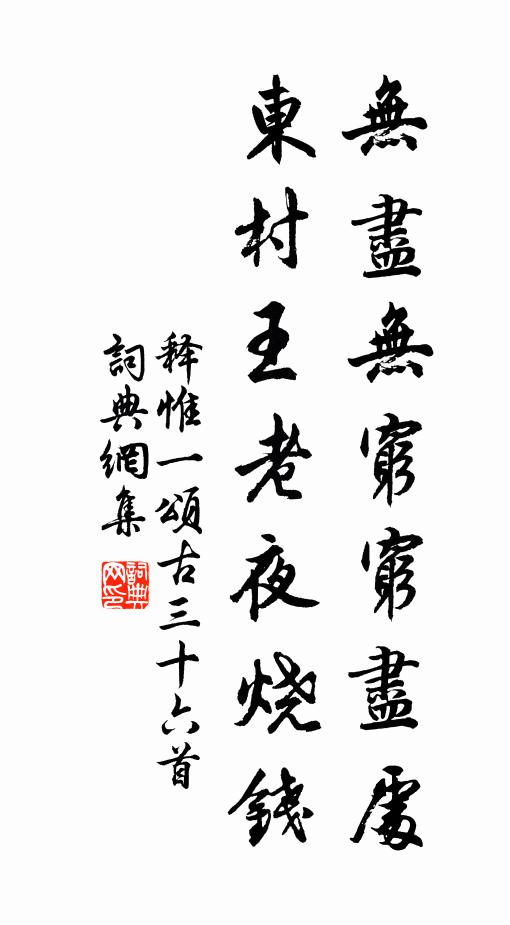 無盡無窮窮盡處
東村王老夜燒錢
释惟一頌古三十六首
詞典網集
詞典网印